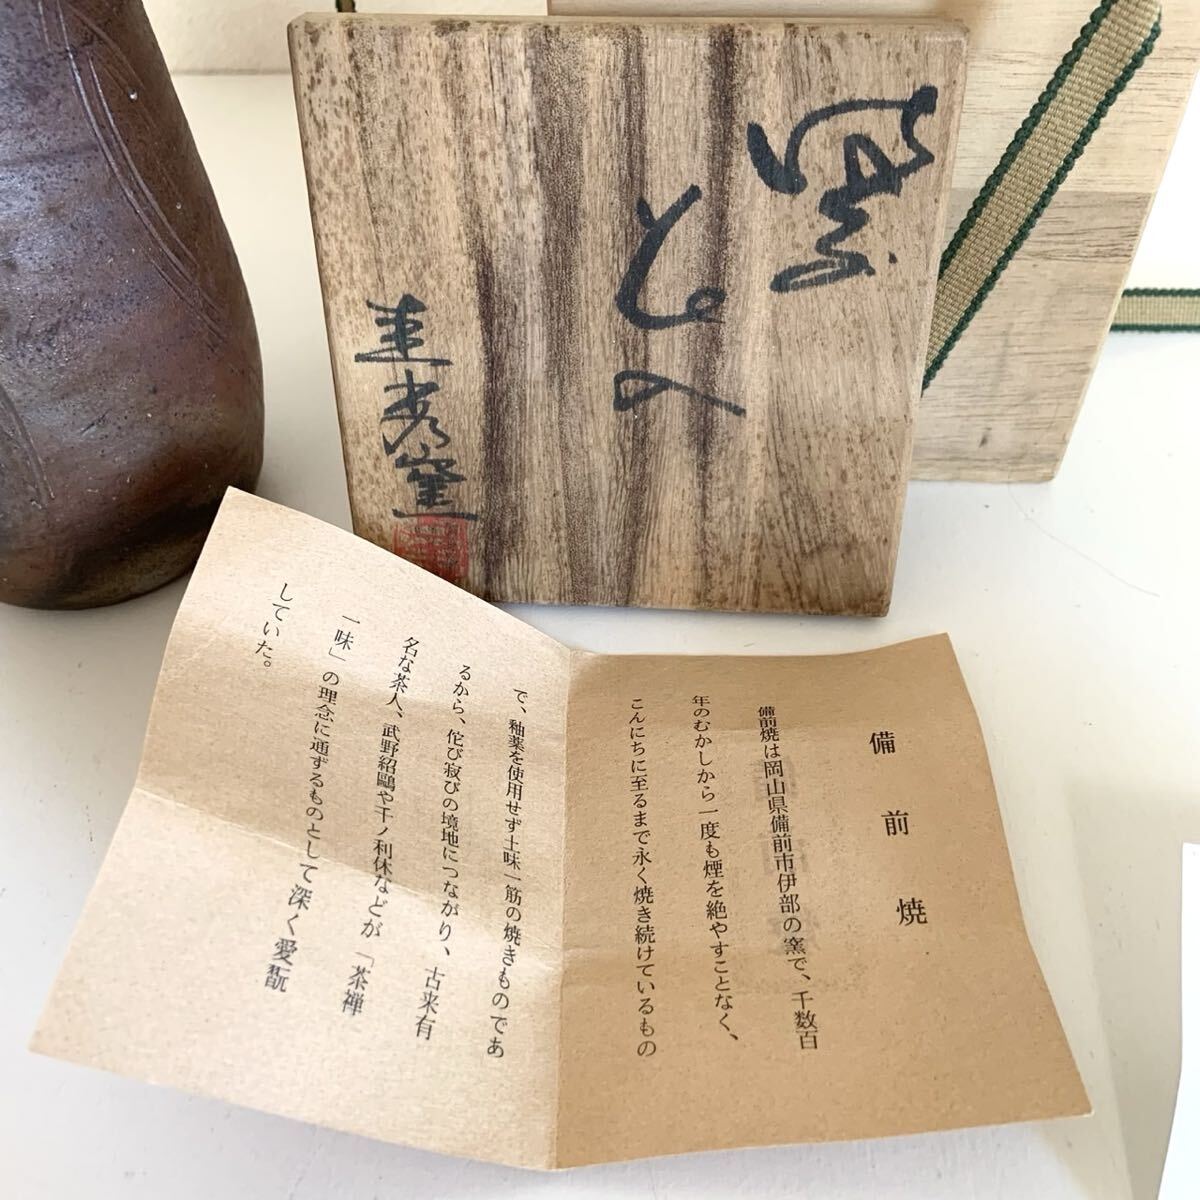 備前焼
備前焼は岡山県備前市伊部の窯で、千数百
年のむかしから一度も煙を絶やすことなく、
こんにちに至るまで永く焼き続けているもの
で、釉薬を使用せず土味一筋の焼きものであ
るから、侘び寂びの境地につながり、古来有
名な茶人、武野紹鷗や千ノ利休などが「茶禅
一味」の理念に通ずるものとして深く愛翫
していた。